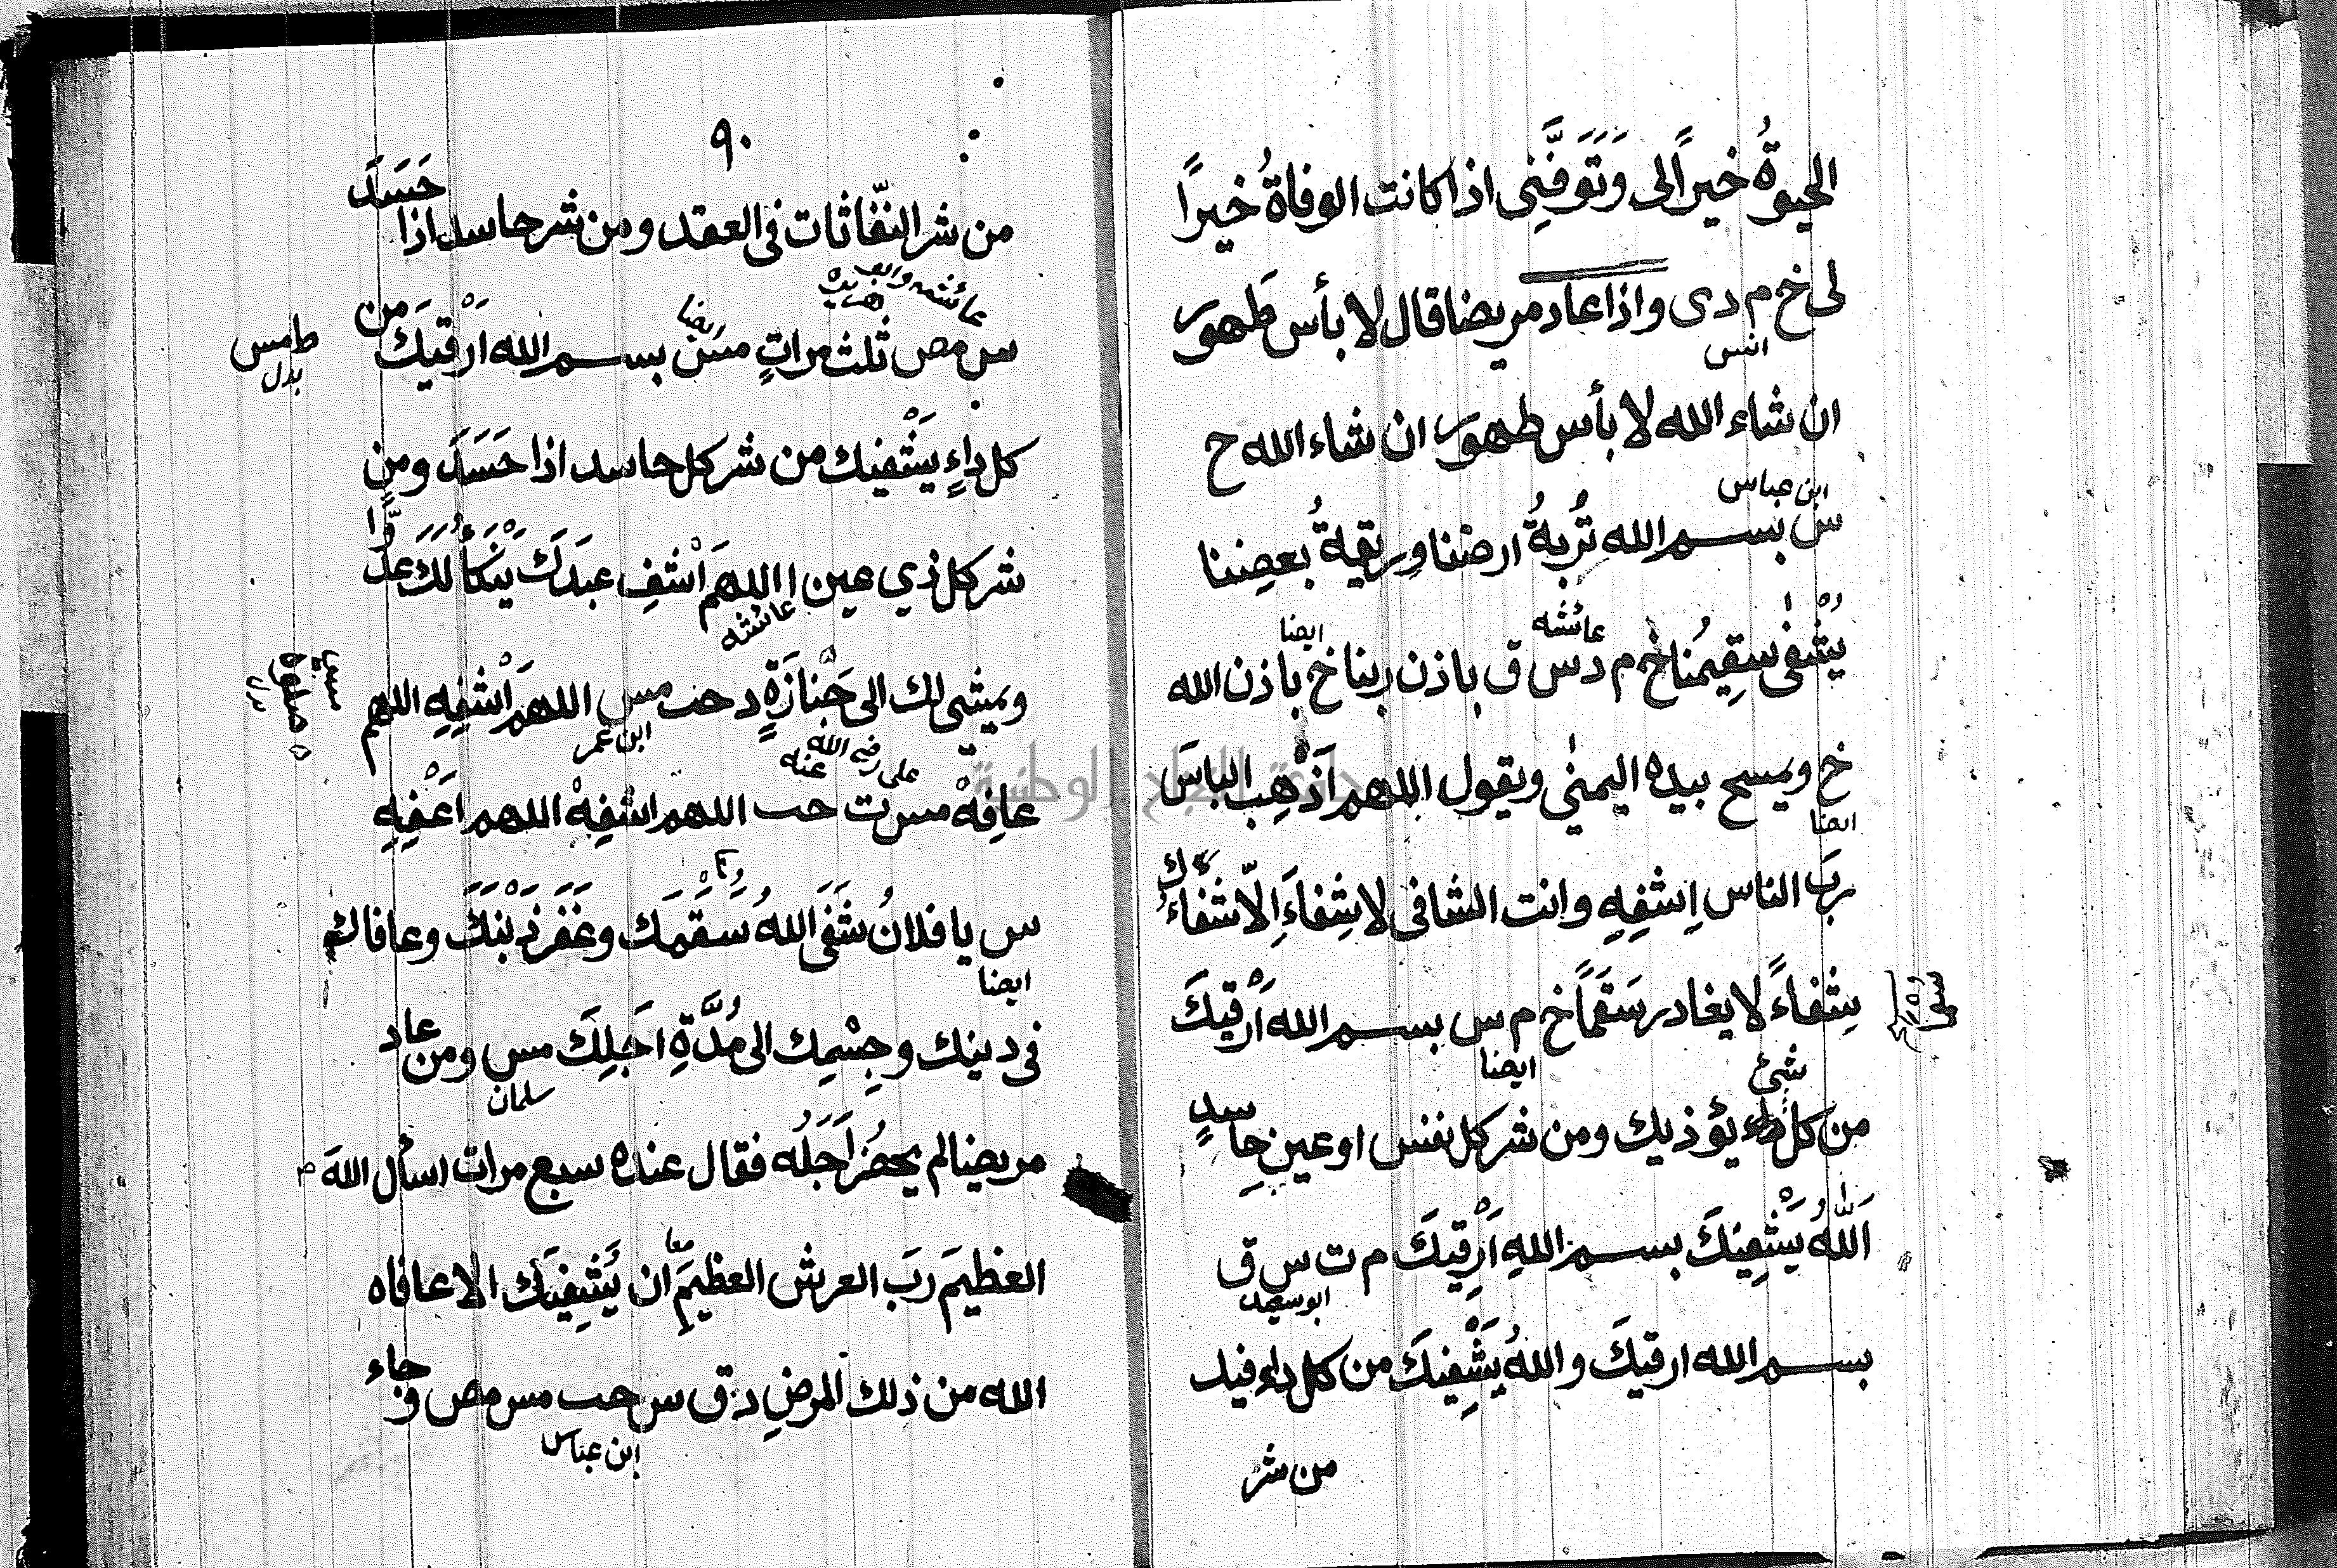 الحيوةُ خيراً لى وَتَوَفَّنِى اذا كانت الوفاةُ خيراً
لى خ م د ى واذا عاد مريضا قال لا بأس طَهور
انس
ان شاء الله لا بأس طهور ان شاء الله خ
ابن عباس
س بسم الله تُربةُ ارضنا وريقةُ بعضِنا
يُشْفٰى سقِيمُنا خ م د س ق باذن ربنا خ باذن الله
عائشه
ايضا
خ ويمسح بيده اليمنٰى ويقول اللهم اَذْهِب الباسَ
ايضا
ربَ الناس اِشفِهِ وانت الشافى لا شِفاءَ اِلّا شفاءُك
شِفاءً لا يغادر سَقَماً خ م س بسم الله اَرْقيكَ
سُقْمًا
ايضا
شئ
من كل داء يؤذيك ومن شر كل نفس او عين حاسدٍ
اَللّٰهُ يَشْفِيْكَ بسم اللهِ اَرْقِيكَ م ت س ق
ابو سعيد
بسم الله ارقيكَ واللهُ يَشْفِيْكَ من كل داء فيك
من شر
٩٠
من شر النفّاثات فى العقد ومن شر حاسد اذا حَسَدَ
عائشه
س مص ثلث مراتٍ مس بسم الله اَرْقيكَ من
ايضا
طامس
بدل
كل داءٍ يَشْفيك من شر كل حاسد اذا حَسَدَ ومن
شر كل ذي عين ا اللهم اَشْفِ عبدَكَ يَنْكَأُ لَكَ عدوًّا
عائشه
ويمشى لك الى جَنازَةٍ د حب مس اللهم اَشْفِهِ اللهم
ابن عمر
على رضى الله عنه
عافِهْ مس ت حب اللهم اشفِهْ اللهم اَعْفِهِ
س يا فلانُ شَفَى اللهُ سُقْمَك وغَفَر ذَنْبَكَ وعافاك
ايضا
فى دينك وجِسْمِك الى مُدَّةِ اَجَلِكَ مس ومن عاد
سلمان
مريضا لم يحضُر اَجَلُه فقال عنده سبع مرات اسأل اللهَ
العظيمَ ربَ العرش العظيمِ ان يَشْفِيَك الا عافاه
معا
الله من ذلك المرضِ د ق س حب مس مص وجاء
ابن عباس